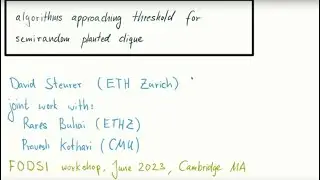 algorithms approaching threshold for
semirandom planted clique
David Steurer (ETH Zurich)
joint work with:
Rares Buhai (ETHZ)
Pravesh Kothari (CMU)
FODSI workshop, June 2023, Cambridge MA